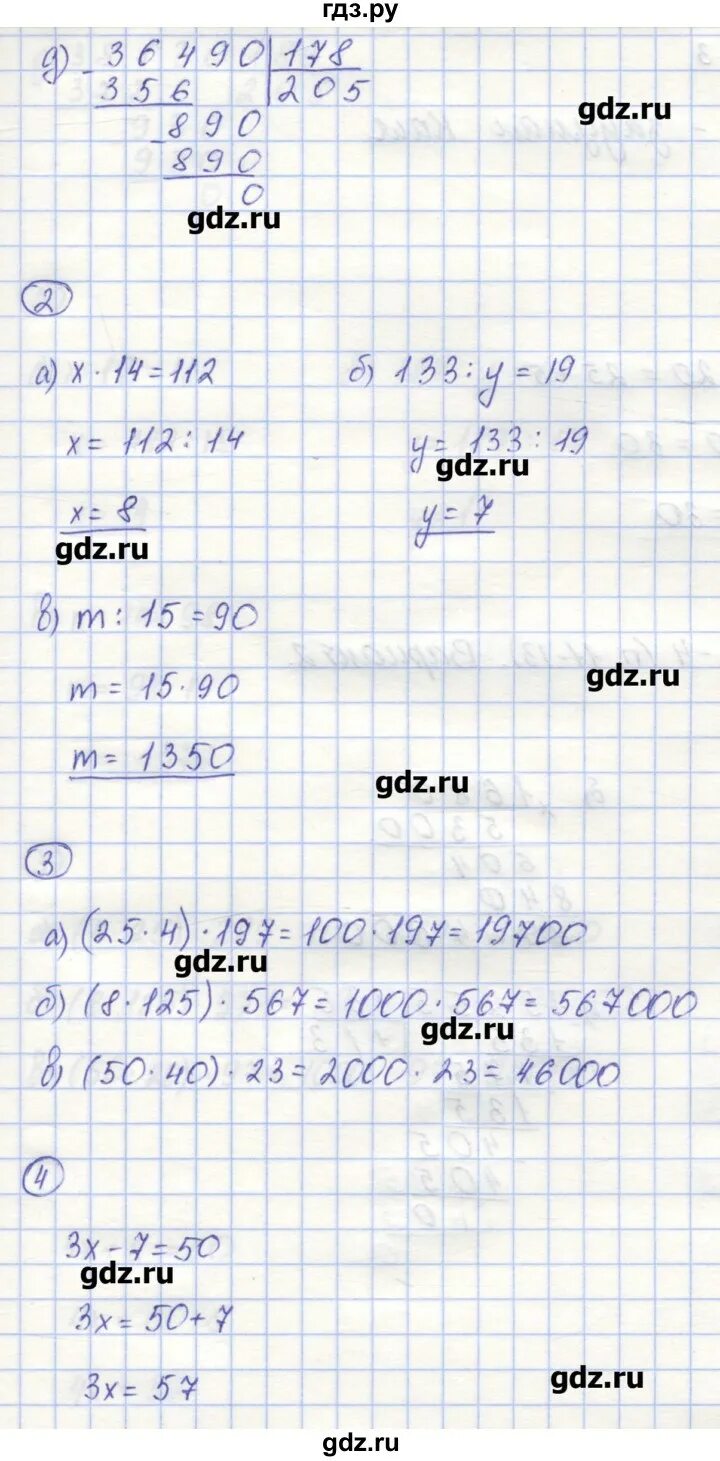 гдз.ру
д) 36490 | 178
- 356 205
gdz.ru
- 890
890
0
gdz.ru
2
а) x · 14 = 112 б) 133 : y = 19
x = 112 : 14 y = 133 : 19
gdz.ru
x = 8 y = 7
gdz.ru
в) m : 15 = 90
m = 15 · 90
gdz.ru
m = 1350
gdz.ru
3
а) (25 · 4) · 197 = 100 · 197 = 19700
gdz.ru
б) (8 · 125) · 567 = 1000 · 567 = 567000
gdz.ru
в) (50 · 40) · 23 = 2000 · 23 = 46000
4
3x - 7 = 50
gdz.ru
3x = 50 + 7
3x = 57
gdz.ru
gdz.ru